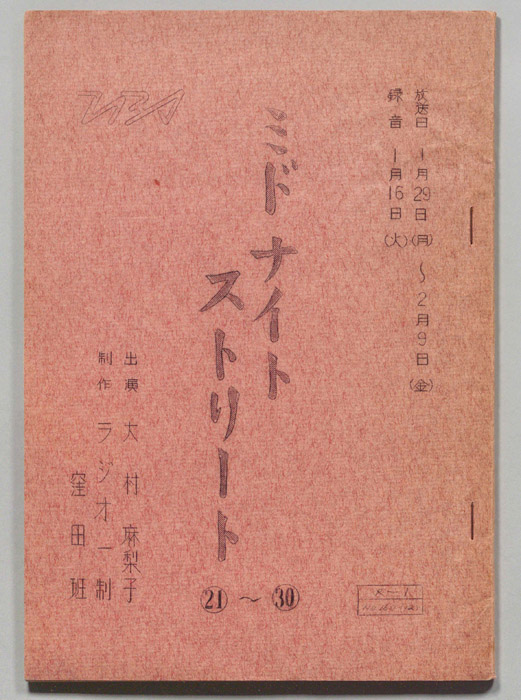 放送日 1月29日(月)〜2月9日(金)
録音 1月16日(火)
ミドナイト
ストリート
㉑〜㉚
出演 大村麻梨子
制作 ラジオ一制
窪田班